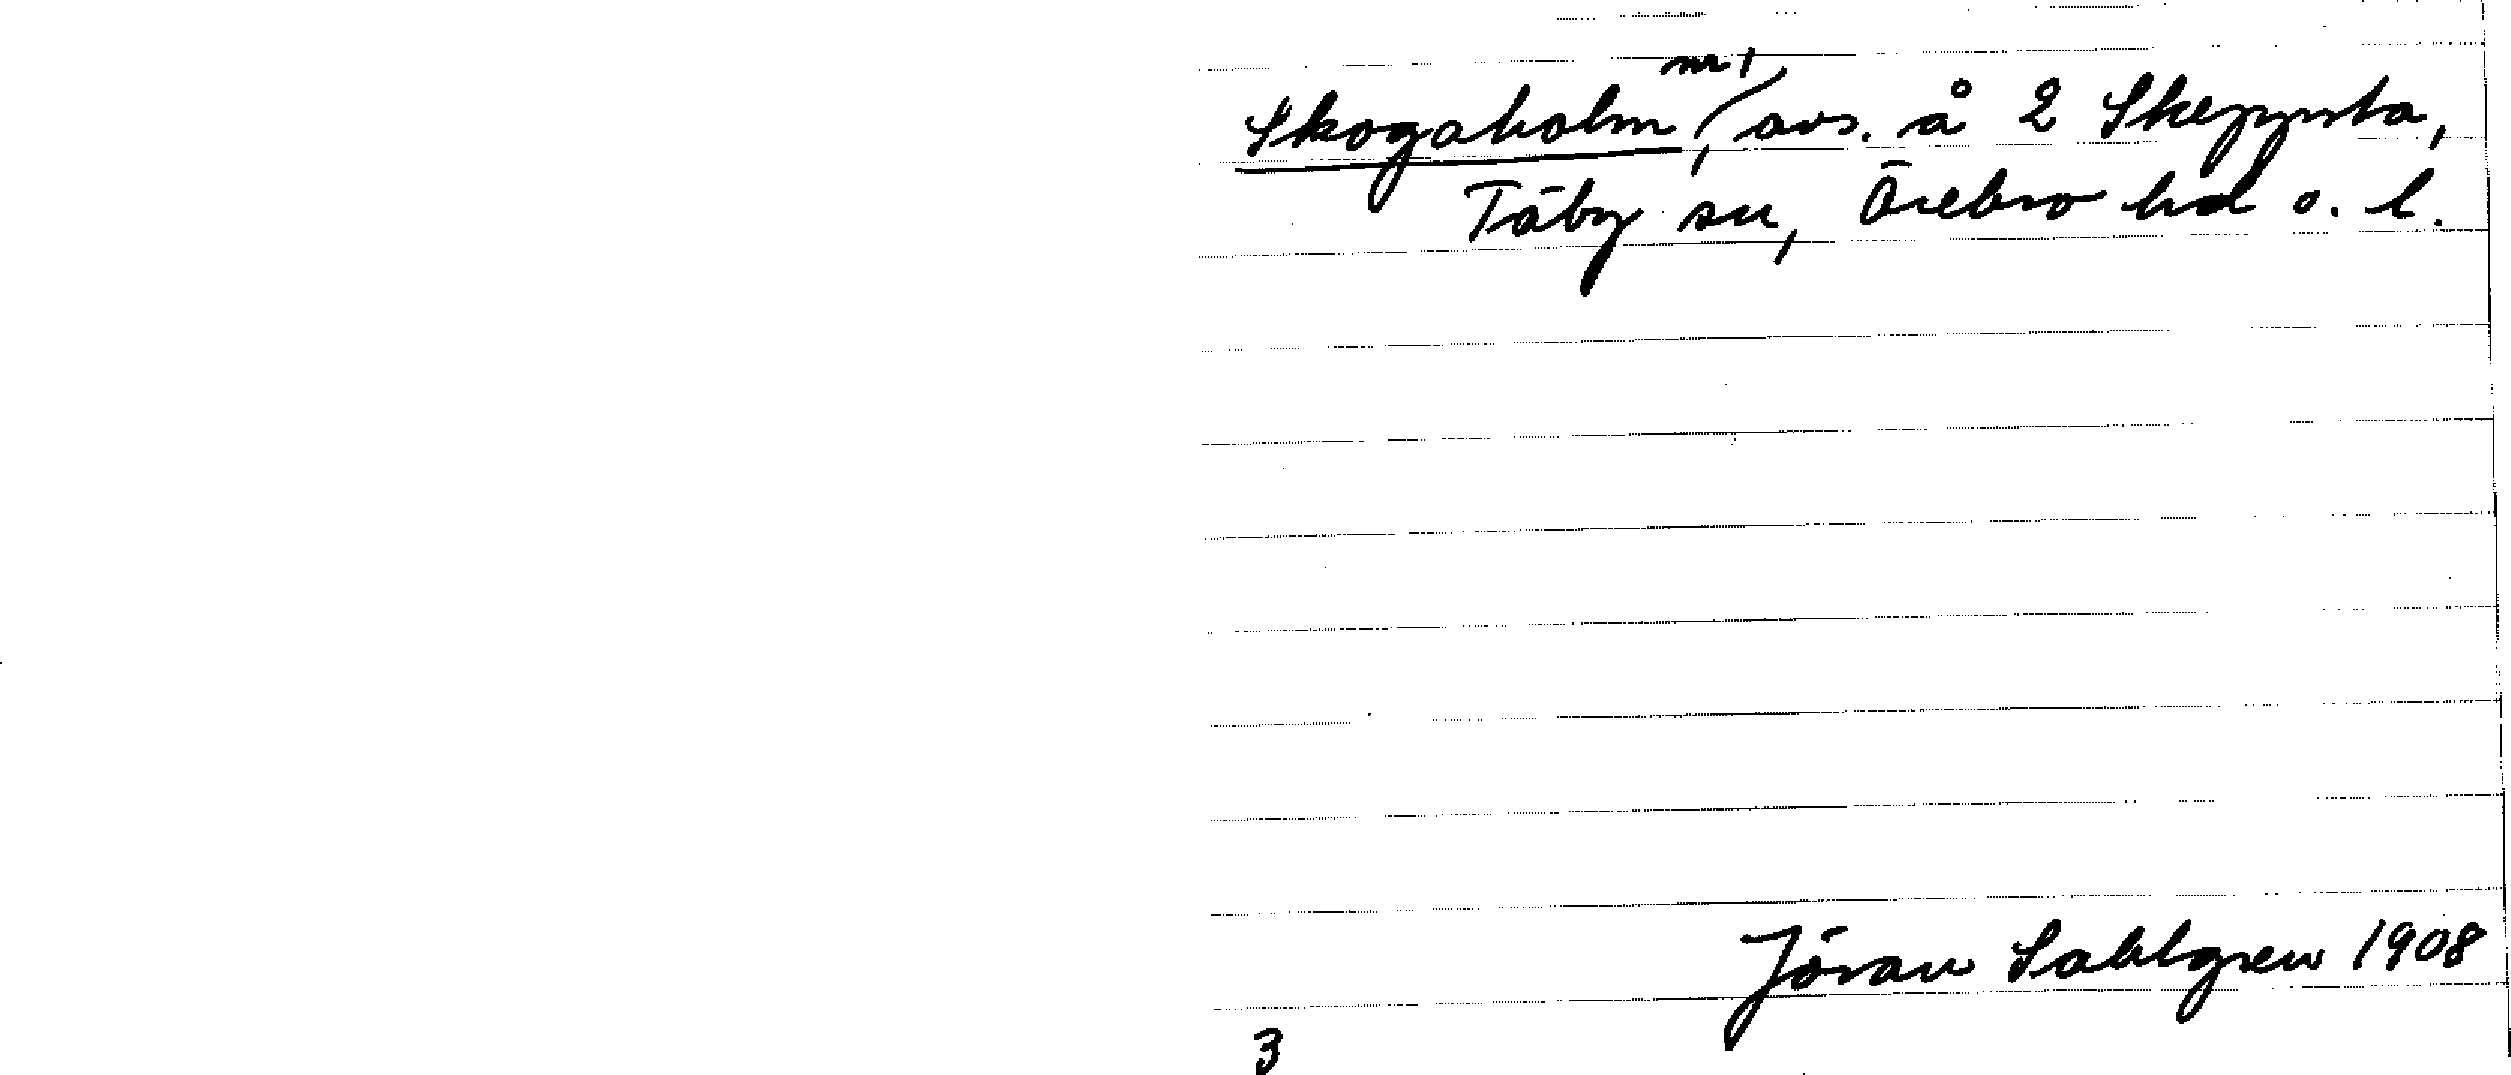 Skogaholm nr 1, avs. å 2 Skeppsta,
Täby sn, Örebro hd o. l.
Jöran Sahlgren 1908
3